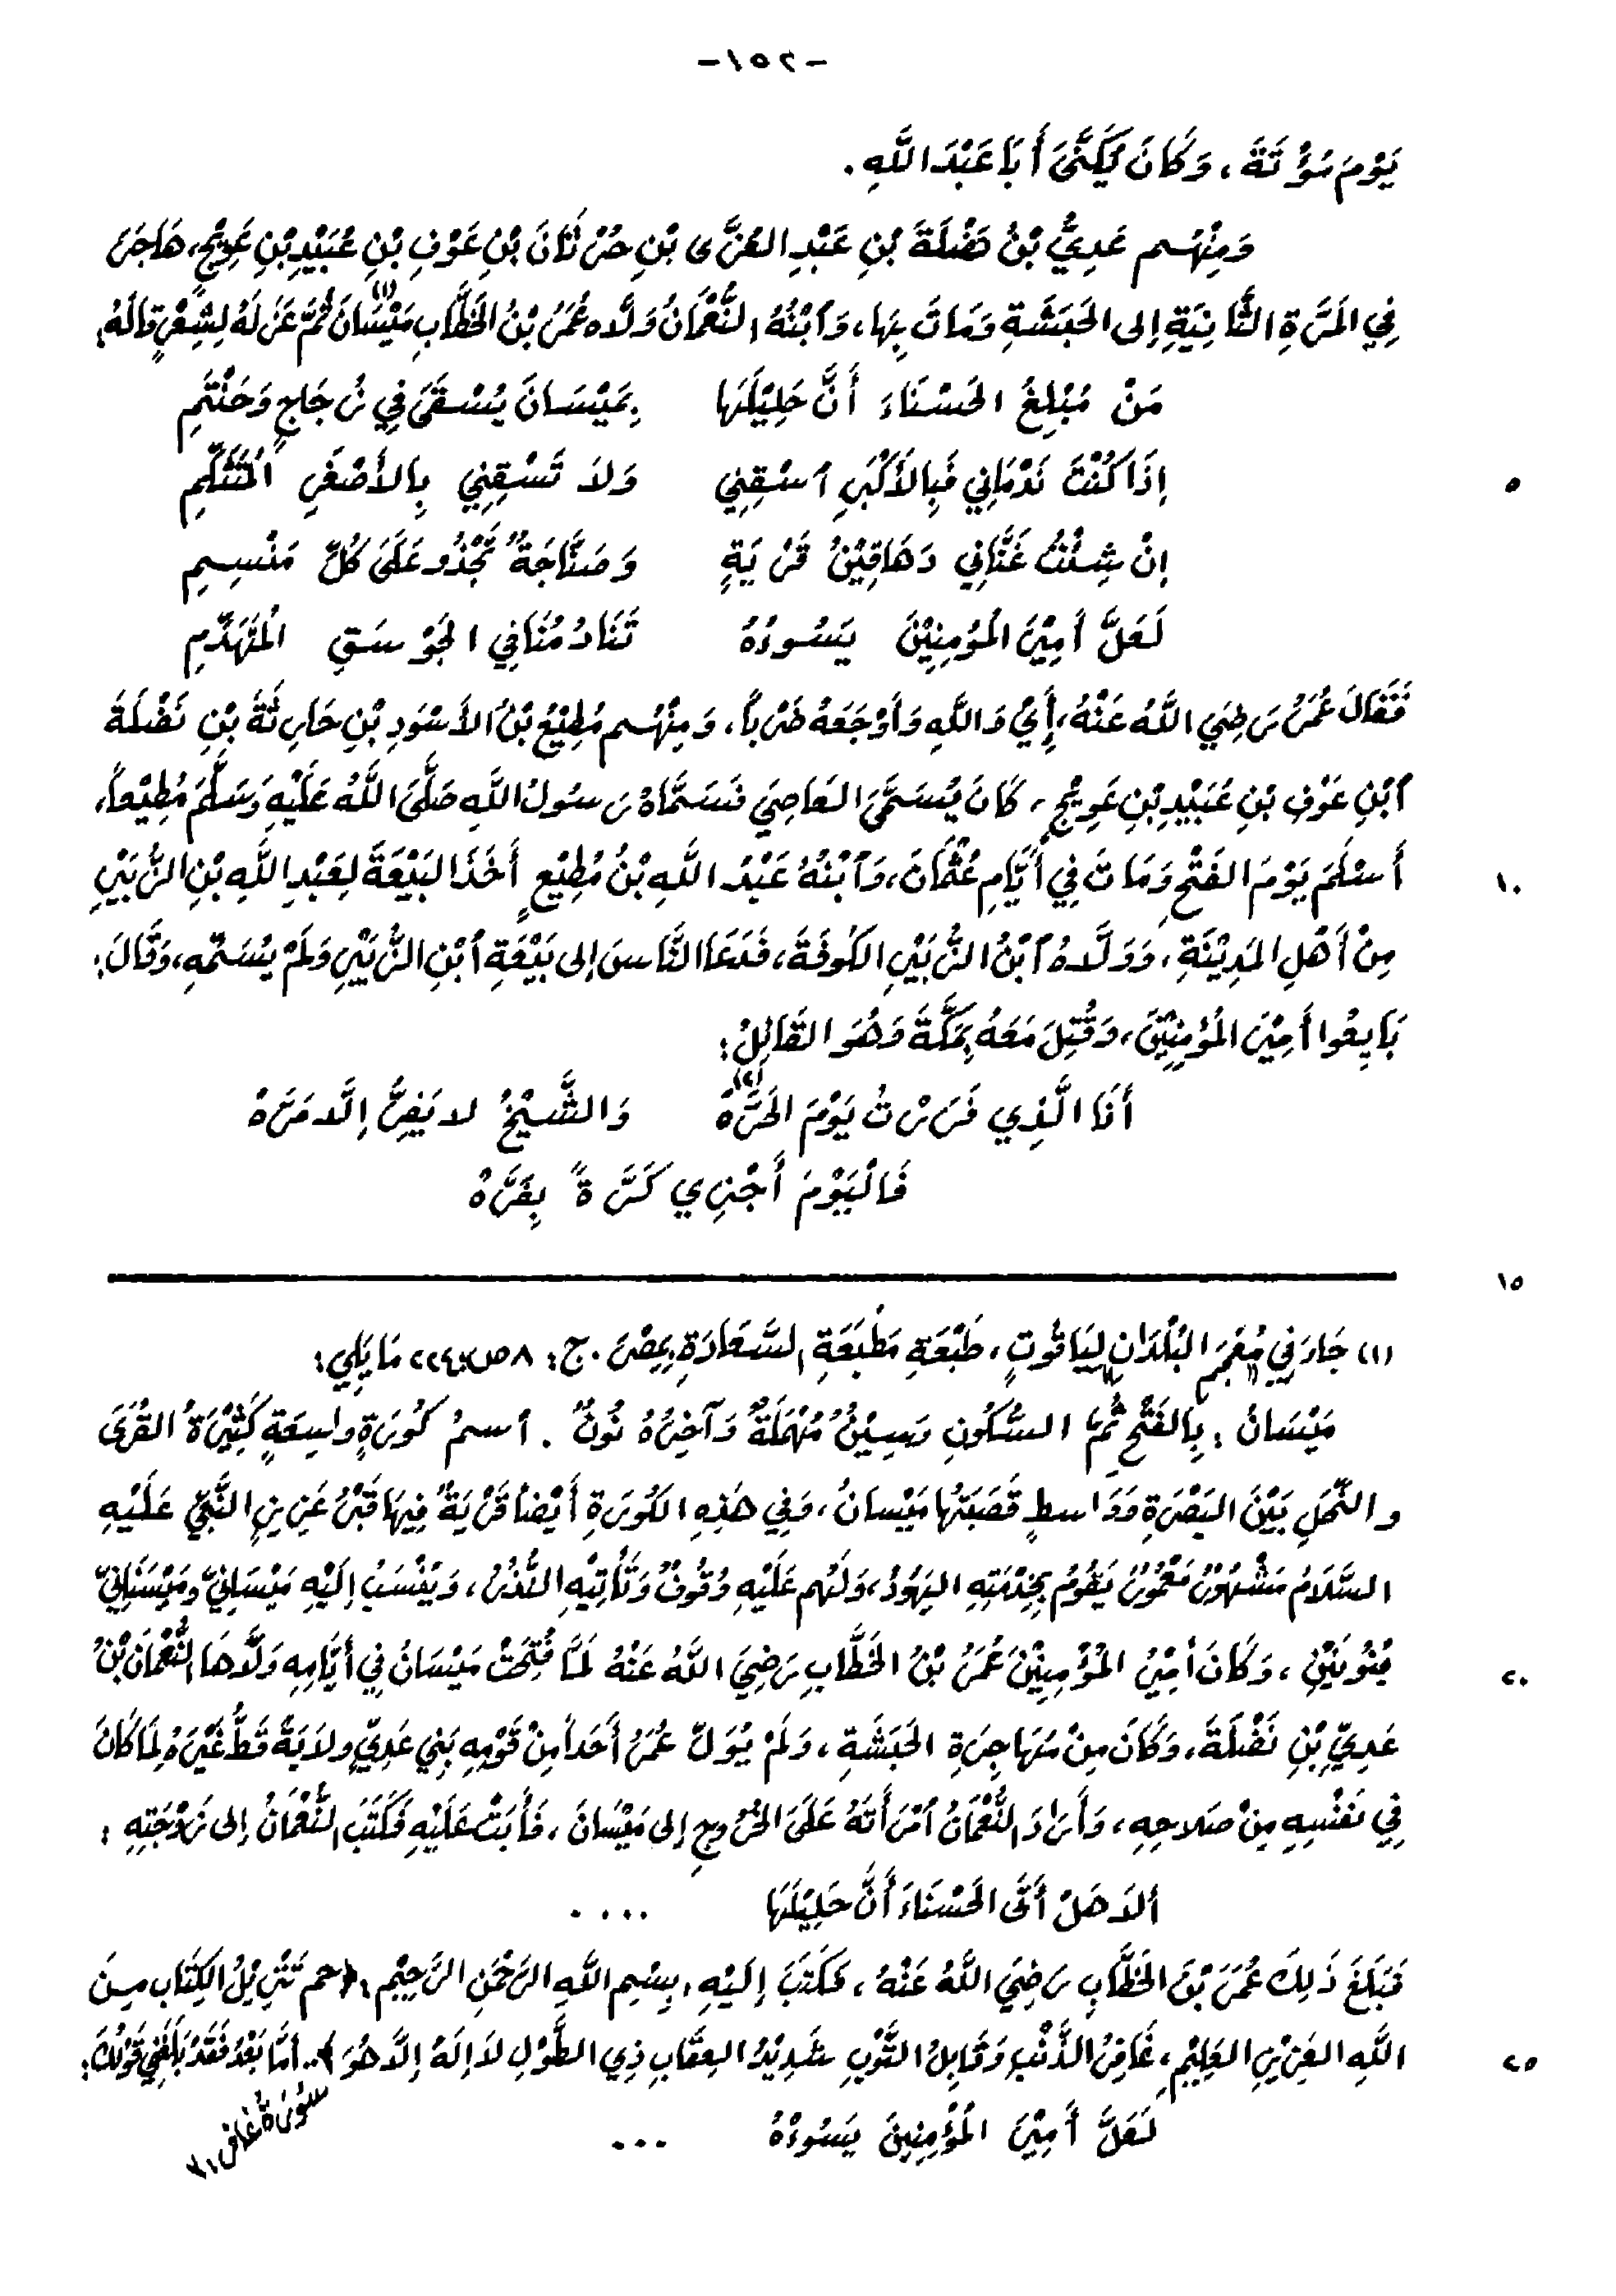 -٢٥١-
يَوْمَ مُؤْتَةَ، وَكَانَ يُكَنَّى أَبَا عَبْدَ اللَّهِ.
وَمِنْهُم عَدِيُّ بْنُ نَضْلَةَ بْنِ عَبْدِ العُزَّى بْنِ حُرْثَانَ بْنِ عَوْفِ بْنِ عُبَيْدِ بْنِ عَوِيْجٍ، هَاجَرَ
فِي المَرَّةِ الثَّانِيَةِ إلى الحَبَشَةِ وَمَاتَ بِهَا، وَٱبْنُهُ النُّعْمَانُ وَلَّاه عُمَرُ بْنُ الخَطَّابِ مَيْسَانَ (١) ثُمَّ عَزَلَهُ لِشِعْرٍ قَالَهُ:
مَنْ مُبْلِغُ الحَسْنَاءَ أَنَّ حَلِيْلَهَا بِمَيْسَانَ يُسْقَى فِي زُجَاجٍ وَحَنْتَمِ
إِذَا كُنْتَ نَدْمَانِي فَبِالأَكْبَرِ ٱسْقِنِي وَلاَ تَسْقِنِي بِالأَصْغَرِ المُتَثَلِّمِ
٥
إِنْ شِئْتُ غَنَّانِي دَهَاقِيْنُ قَرْيَةٍ وَصَنَّاجَةٌ تَجْذُو عَلَى كُلِّ مَنْسِمِ
لَعَلَّ أَمِيْرَ المُؤْمِنِيْنَ يَسُوءُهُ تَنَادُمُنَا فِي الجَوْسَقِ المُتَهَدِّمِ
فَقَالَ عُمَرُ رَضِيَ اللَّهُ عَنْهُ، إِيْ وَاللَّهِ وَأَوْجَعَهُ ضَرْباً، وَمِنْهُم مُطِيْعُ بْنُ الأَسْوَدِ بْنِ حَارِثَةَ بْنِ نَضْلَةَ
ٱبْنِ عَوْفِ بْنِ عُبَيْدِ بْنِ عَوِيْجٍ، كَانَ يُسَمَّى العَاصِيَ فَسَمَّاهُ رَسُولُ اللَّهِ صَلَّى اللَّهُ عَلَيْهِ وَسَلَّمَ مُطِيْعاً،
أَسْلَمَ يَوْمَ الفَتْحِ وَمَاتَ فِي أَيَّامِ عُثْمَانَ، وَٱبْنُهُ عَبْدُ اللَّهِ بْنُ مُطِيْعٍ أَخَذَ البَيْعَةَ لِعَبْدِ اللَّهِ بْنِ الزُّبَيْرِ
١٠
مِنْ أَهْلِ المَدِيْنَةِ، وَوَلَّاهُ ٱبْنُ الزُّبَيْرِ الكُوفَةَ، فَدَعَا النَّاسَ إلى بَيْعَةِ ٱبْنِ الزُّبَيْرِ وَلَمْ يُسَمِّهِ، وَقَالَ:
بَايِعُوا أَمِيْرَ المُؤْمِنِيْنَ، وَقُتِلَ مَعَهُ بِمَكَّةَ وَهُوَ القَائِلُ:
أَنَا الَّذِي فَرَرْتُ يَوْمَ الحَرَّهْ (٢) وَالشَّيْخُ لا يَفِرُّ إِلَّا مَرَّهْ
فَالْيَوْمَ أَجْزِي كَرَّةً بِفَرَّهْ
١٥
(١) جَاءَ فِي مُعْجَمِ البُلْدَانِ لِيَاقُوتٍ، طَبْعَةِ مَطْبَعَةِ السَّعَادَةِ بِمِصْرَ. ج: ٨ ص: ٢٢٤ مَا يَلِي:
مَيْسَانُ: بِالفَتْحِ ثُمَّ السُّكُونِ وَسِيْنٌ مُهْمَلَةٌ وَآخِرُهُ نُونٌ. ٱسمُ كُورَةٍ واسِعَةٍ كَثِيْرَةُ القُرَى
والنَّخْلِ بَيْنَ البَصْرَةِ وَوَاسطٍ قَصَبَتُهَا مَيْسانُ، وَفِي هَذِهِ الكُورَةِ أَيْضاً قَرْيَةٌ فِيهَا قَبْرُ عَزِيزٍ النَّبِيِّ عَلَيْهِ
السَّلَامُ مَشْهُورٌ مَعْمُورٌ يَقُومُ بِخِدْمَتِهِ اليَهُودُ، وَلَهُم عَلَيْهِ وُقُوفٌ وَتَأْتِيْهِ النُّذُرُ، وَيُنْسَبُ إِلَيْهِ مَيْسَانِيّ وَمَيْسَنَانِيّ
بِنُونَيْنِ، وَكَانَ أَمِيْرُ المُؤْمِنِيْنَ عُمَرُ بْنُ الخَطَّابِ رَضِيَ اللَّهُ عَنْهُ لَمَّا فُتِحَتْ مَيْسَانُ فِي أَيَّامِهِ وَلَّاهَا النُّعْمَانَ بْنُ
٢٠
عَدِيِّ بْنِ نَضْلَةَ، وَكَانَ مِنْ مُهَاجِرَةِ الحَبَشَةِ، وَلَمْ يُوَلِّ عُمَرُ أَحَداً مِنْ قَوْمِهِ بَنِي عَدِيٍّ ولاَيَةً قَطُّ غَيْرَهُ لِمَا كَانَ
فِي نَفْسِهِ مِنْ صَلاحِهِ، وَأَرَادَ النُّعْمَانُ ٱمْرَأَتَهُ عَلَى الخُرُوجِ إلى مَيْسَانَ، فَأَبَتْ عَلَيْهِ فَكَتَبَ النُّعْمَانُ إلى زَوْجَتِهِ:
أَلاَ هَلْ أَتَى الحَسْنَاءَ أَنَّ حَلِيْلَهَا ....
فَبَلَغَ ذَلِكَ عُمَرَ بْنَ الخَطَّابِ رَضِيَ اللَّهُ عَنْهُ، فَكَتَبَ إِلَيْهِ، بِسْمِ اللَّهِ الرَّحْمَنِ الرَّحِيْمِ: ﴿حم تَنْزِيْلُ الكِتَابِ مِنَ
اللَّهِ العَزِيْزِ العَلِيْمِ، غَافِرِ الذَّنْبِ وَقَابِلُ التَّوْبِ شَدِيْدُ العِقَابِ ذِي الطَّوْلِ لاَ إِلَهَ إِلَّا هُوَ﴾.. أَمَّا بَعْدُ فَقَدْ بَلَغَنِي قَوْلُكَ:
٢٥
سُورَةُ غافر
لَعَلَّ أَمِيْرَ المُؤْمِنِينَ يَسُوءُهُ ...